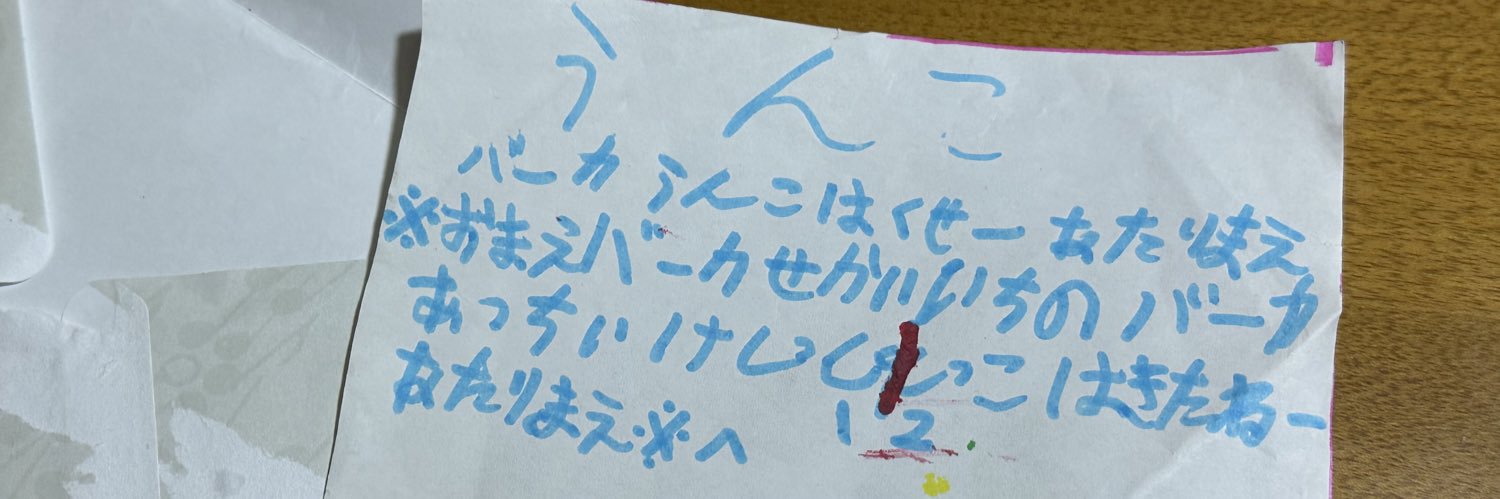 うんこ
バーカ うんこはくせー あたりまえ
※おまえバーカせかいいちのバーカ
あっちいけしししっこはきたねー
あたりまえ※へ 12